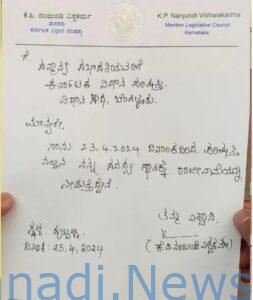 ಕೆ.ಪಿ. ನಂಜುಂಡಿ ವಿಶ್ವಕರ್ಮ
ಶಾಸಕರು
ಕರ್ನಾಟಕ ವಿಧಾನ ಪರಿಷತ್ತು
K.P. Nanjundi Vishwakarma
Member Legislative Council
Karnataka
ಗೆ,
ಸನ್ಮಾನ್ಯ ಸಭಾಪತಿಯವರಿಗೆ
ಕರ್ನಾಟಕ ವಿಧಾನ ಪರಿಷತ್ತು
ವಿಧಾನ ಸೌಧ, ಬೆಂಗಳೂರು.
ಮಾನ್ಯರೇ,
ನಾನು 23.4.2024 ದಿನಾಂಕದಿಂದ, ಪರಿಷತ್ತಿನ
ನನ್ನ ಸದಸ್ಯ ಸ್ಥಾನಕ್ಕೆ ರಾಜೀನಾಮೆಯನ್ನು
ನೀಡುತ್ತಿದ್ದೇನೆ.
ತಮ್ಮ ವಿಶ್ವಾಸಿ
ಸ್ಥಳ: ಹುಬ್ಬಳ್ಳಿ
ದಿನಾಂಕ: 23.4.2024
(ಕೆ.ಪಿ.ನಂಜುಂಡಿ ವಿಶ್ವಕರ್ಮ)
nadi.News